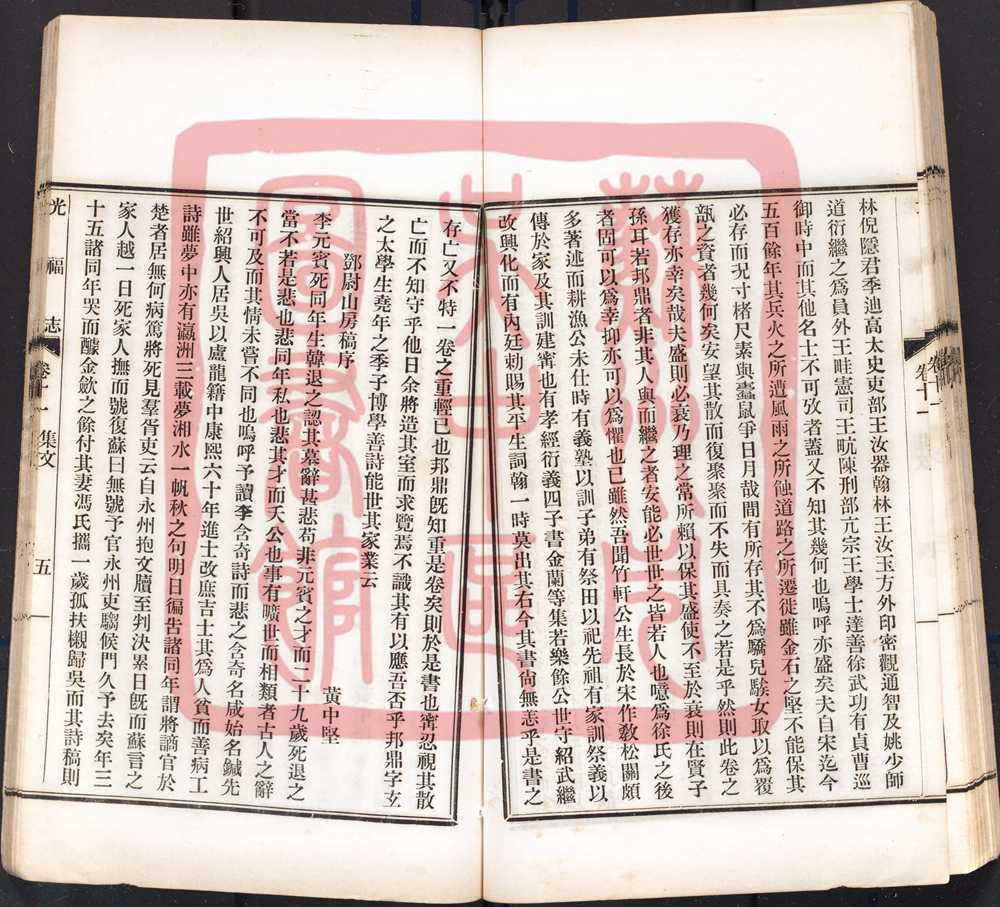 林倪隱君季迪高太史吏部王汝器翰林王汝玉方外印密觀通智及姚少師
道衍繼之爲員外王畦憲司王𤰟陳刑部亢宗王學士達善徐武功有貞曹巡
御時中而其他名士不可攷者蓋又不知其幾何也嗚呼亦盛矣夫自宋迄今
五百餘年其兵火之所遭風雨之所蝕道路之所遷徙雖金石之堅不能保其
必存而況寸楮尺素與蠹鼠爭日月哉間有所存其不爲驕兒騃女取以爲覆
瓿之資者幾何矣安望其散而復聚聚而不失而具奏之若是乎然則此卷之
獲存亦幸矣哉夫盛則必衰乃理之常所賴以保其盛使不至於衰則在賢子
孫耳若邦鼎者非其人與而繼之者安能必世世之皆若人也噫爲徐氏之後
者固可以爲幸抑亦可以爲懼也已雖然吾聞竹軒公生長於宋作敎松關頗
多著述而耕漁公未仕時有義塾以訓子弟有祭田以祀先祖有家訓祭義以
傳於家及其訓建甯也有孝經衍義四子書金蘭等集若樂餘公世守紹武繼
改興化而有內廷勅賜其平生詞翰一時莫出其右今其書尙無恙乎是書之
存亡又不特一卷之重輕已也邦鼎旣知重是卷矣則於是書也甯忍視其散
亡而不知守乎他日余將造其至而求覽焉不識其有以應吾否乎邦鼎字玄
之太學生堯年之季子博學善詩能世其家業云
鄧尉山房稿序
黄中堅
李元賓死同年生韓退之認其墓辭甚悲苟非元賓之才而二十九歲死退之
當不若是悲也悲同年私也悲其才而夭公也事有曠世而相類者古人之辭
不可及而其情未嘗不同也嗚呼予讀李含奇詩而悲之含奇名咸始名鍼先
世紹興人居吳以盧龍籍中康熙六十年進士改庶吉士其爲人貧而善病工
詩雖夢中亦有瀛洲三載夢湘水一帆秋之句明日徧告諸同年謂將謫官於
楚者居無何病篤將死見羣胥吏云自永州抱文牘至判決累日旣而蘇言之
家人越一日死家人撫而號復蘇曰無號予官永州吏騶候門久予去矣年三
十五諸同年哭而醵金歛之餘付其妻馮氏攜一歲孤扶櫬歸吳而其詩稿則
光福志
卷十一 集文
五
蘇州大學圖書館